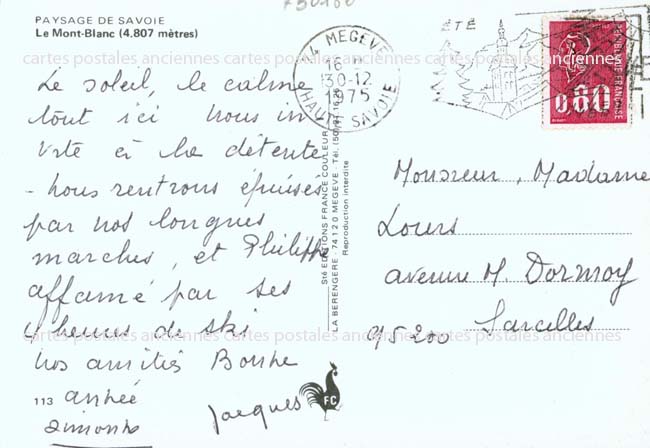 PAYSAGE DE SAVOIE
Le Mont-Blanc (4.807 mètres)
Le soleil, le calme
tout ici nous in
vite à la détente
- nous rentrons épuisés
par nos longues
marches, et Philippe
affamé par ses
4 heures de ski
Nos amitiés Bonne
année
Simone
Jacques
113
FC
Sté EDITIONS FRANCE COULEUR
LA BERENGERE 74120 MEGEVE Tél.
Reproduction interdite
MEGEVE
16 H
30-12
1975
HAUTE SAVOIE
ÉTÉ
0,80
REPUBLIQUE FRANÇAISE
Monsieur, Madame
Louis
avenue M. Dormoy
95200 Sarcelles
cartes postales anciennes cartes postales anciennes cartes postales anciennes
cartes postales anciennes cartes postales anciennes cartes postales anciennes